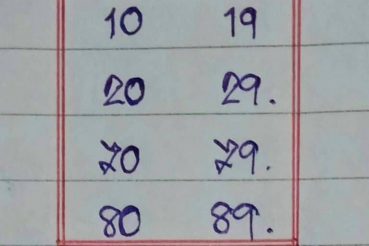 10 19
20 29.
70 79.
80 89.